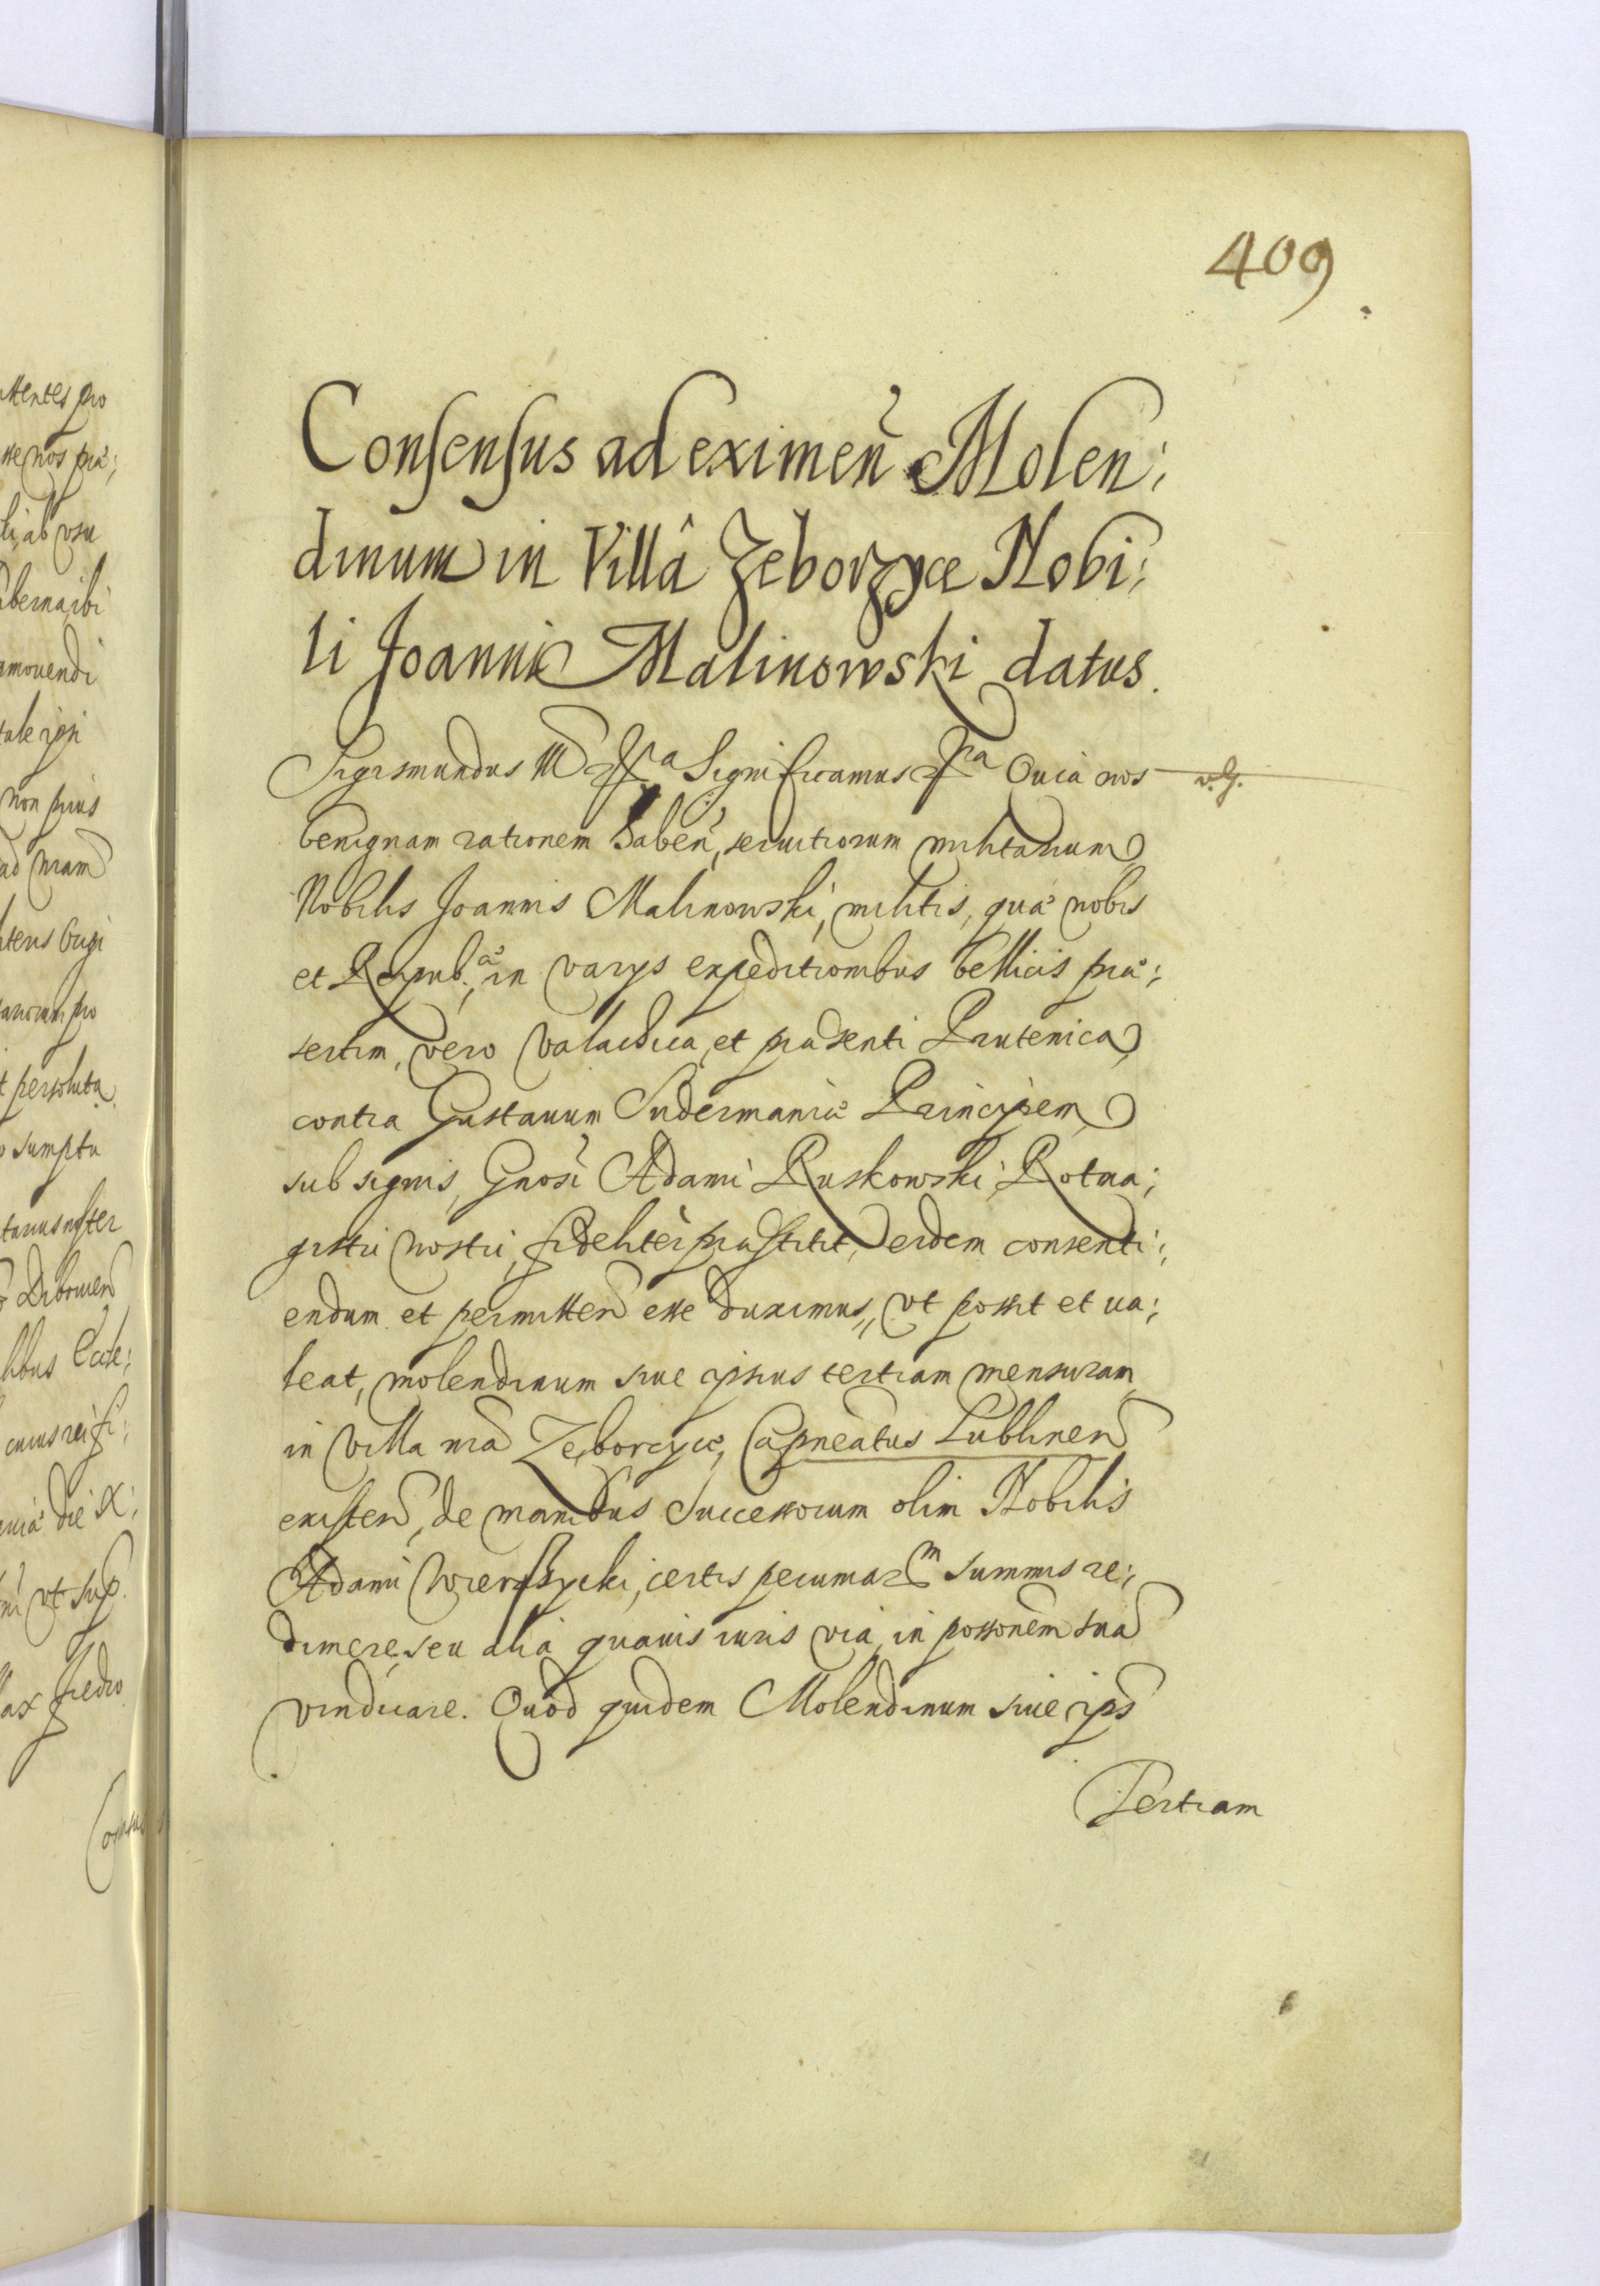 409
Consensus ad eximen̄ Molen:
dinum in Villâ Zeborzyce Nobi:
li Joanni Malinowski datus.
Sigismundus III etc. Significamus etc. Quia nos
v. g.
benignam rationem haben, seruitiorum militarium
Nobilis Joannis Malinowski, militis, quæ nobis
et Reipub: in varys expeditionibus bellicis præ:
sertim, vero Valachica, et præsenti Prutenica
contra Gustauum Sudermaniæ Principem
sub signis, Gnosi Adami Ruskowski, Rotma:
gistri nostri, fideliter præstitit, eidem consenti:
endum et permitten esse duximus, vt possit et ua:
leat, molendinum siue ipsius tertiam mensuram
in villa nra Zeborzyce, Capneatus Lublinen
existen, de manibus Successorum olim Nobilis
Adami Wierzbycki, certis pecuniarm summis re:
dimere, seu alia quauis iuris via, in possonem sua
vindicare. Quod quidem Molendinum siue ips
Tertiam
ttentes pro
sse nos præ:
li, ab vsu
amouendi
non prius
ad nram
t persoluta
sumptu
cuius rei fi:
die X:
vt sup.